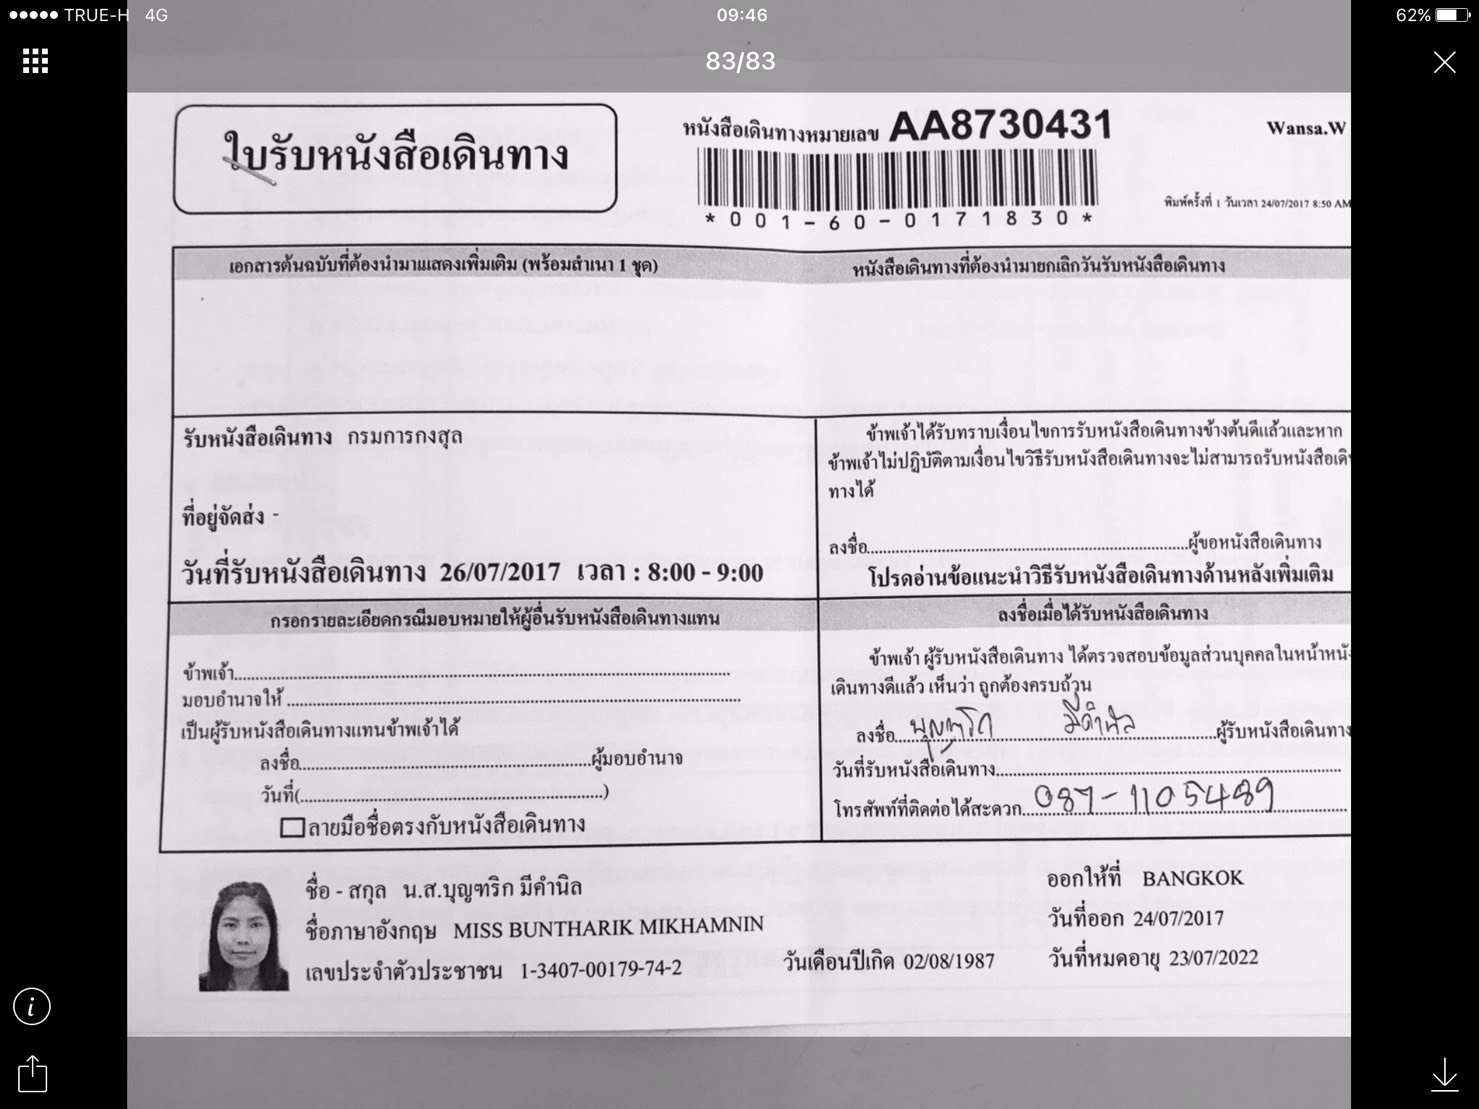 TRUE-H 4G 09:46 62%
83/83
ใบรับหนังสือเดินทาง
หนังสือเดินทางหมายเลข AA8730431
Wansa.W
*001-60-0171830*
พิมพ์ครั้งที่ 1 วันเวลา 24/07/2017 8:50 AM
เอกสารต้นฉบับที่ต้องนำมาแสดงเพิ่มเติม (พร้อมสำเนา 1 ชุด)
หนังสือเดินทางที่ต้องนำมายกเลิกวันรับหนังสือเดินทาง
รับหนังสือเดินทาง กรมการกงสุล
ที่อยู่จัดส่ง -
วันที่รับหนังสือเดินทาง 26/07/2017 เวลา : 8:00 - 9:00
ข้าพเจ้าได้รับทราบเงื่อนไขการรับหนังสือเดินทางข้างต้นดีแล้วและหาก
ข้าพเจ้าไม่ปฏิบัติตามเงื่อนไขวิธีรับหนังสือเดินทางจะไม่สามารถรับหนังสือเดิน
ทางได้
ลงชื่อ..........ผู้ขอหนังสือเดินทาง
โปรดอ่านข้อแนะนำวิธีรับหนังสือเดินทางด้านหลังเพิ่มเติม
กรอกรายละเอียดกรณีมอบหมายให้ผู้อื่นรับหนังสือเดินทางแทน
ข้าพเจ้า..........
มอบอำนาจให้ ..........
เป็นผู้รับหนังสือเดินทางแทนข้าพเจ้าได้
ลงชื่อ..........ผู้มอบอำนาจ
วันที่(..........)
ลายมือชื่อตรงกับหนังสือเดินทาง
ลงชื่อเมื่อได้รับหนังสือเดินทาง
ข้าพเจ้า ผู้รับหนังสือเดินทาง ได้ตรวจสอบข้อมูลส่วนบุคคลในหน้าหนัง
เดินทางดีแล้ว เห็นว่า ถูกต้องครบถ้วน
ลงชื่อ บุญฑริก มีคำนิล ผู้รับหนังสือเดินทาง
วันที่รับหนังสือเดินทาง..........
โทรศัพท์ที่ติดต่อได้สะดวก 087-1105489
ชื่อ - สกุล น.ส.บุญฑริก มีคำนิล
ชื่อภาษาอังกฤษ MISS BUNTHARIK MIKHAMNIN
เลขประจำตัวประชาชน 1-3407-00179-74-2
วันเดือนปีเกิด 02/08/1987
ออกให้ที่ BANGKOK
วันที่ออก 24/07/2017
วันที่หมดอายุ 23/07/2022